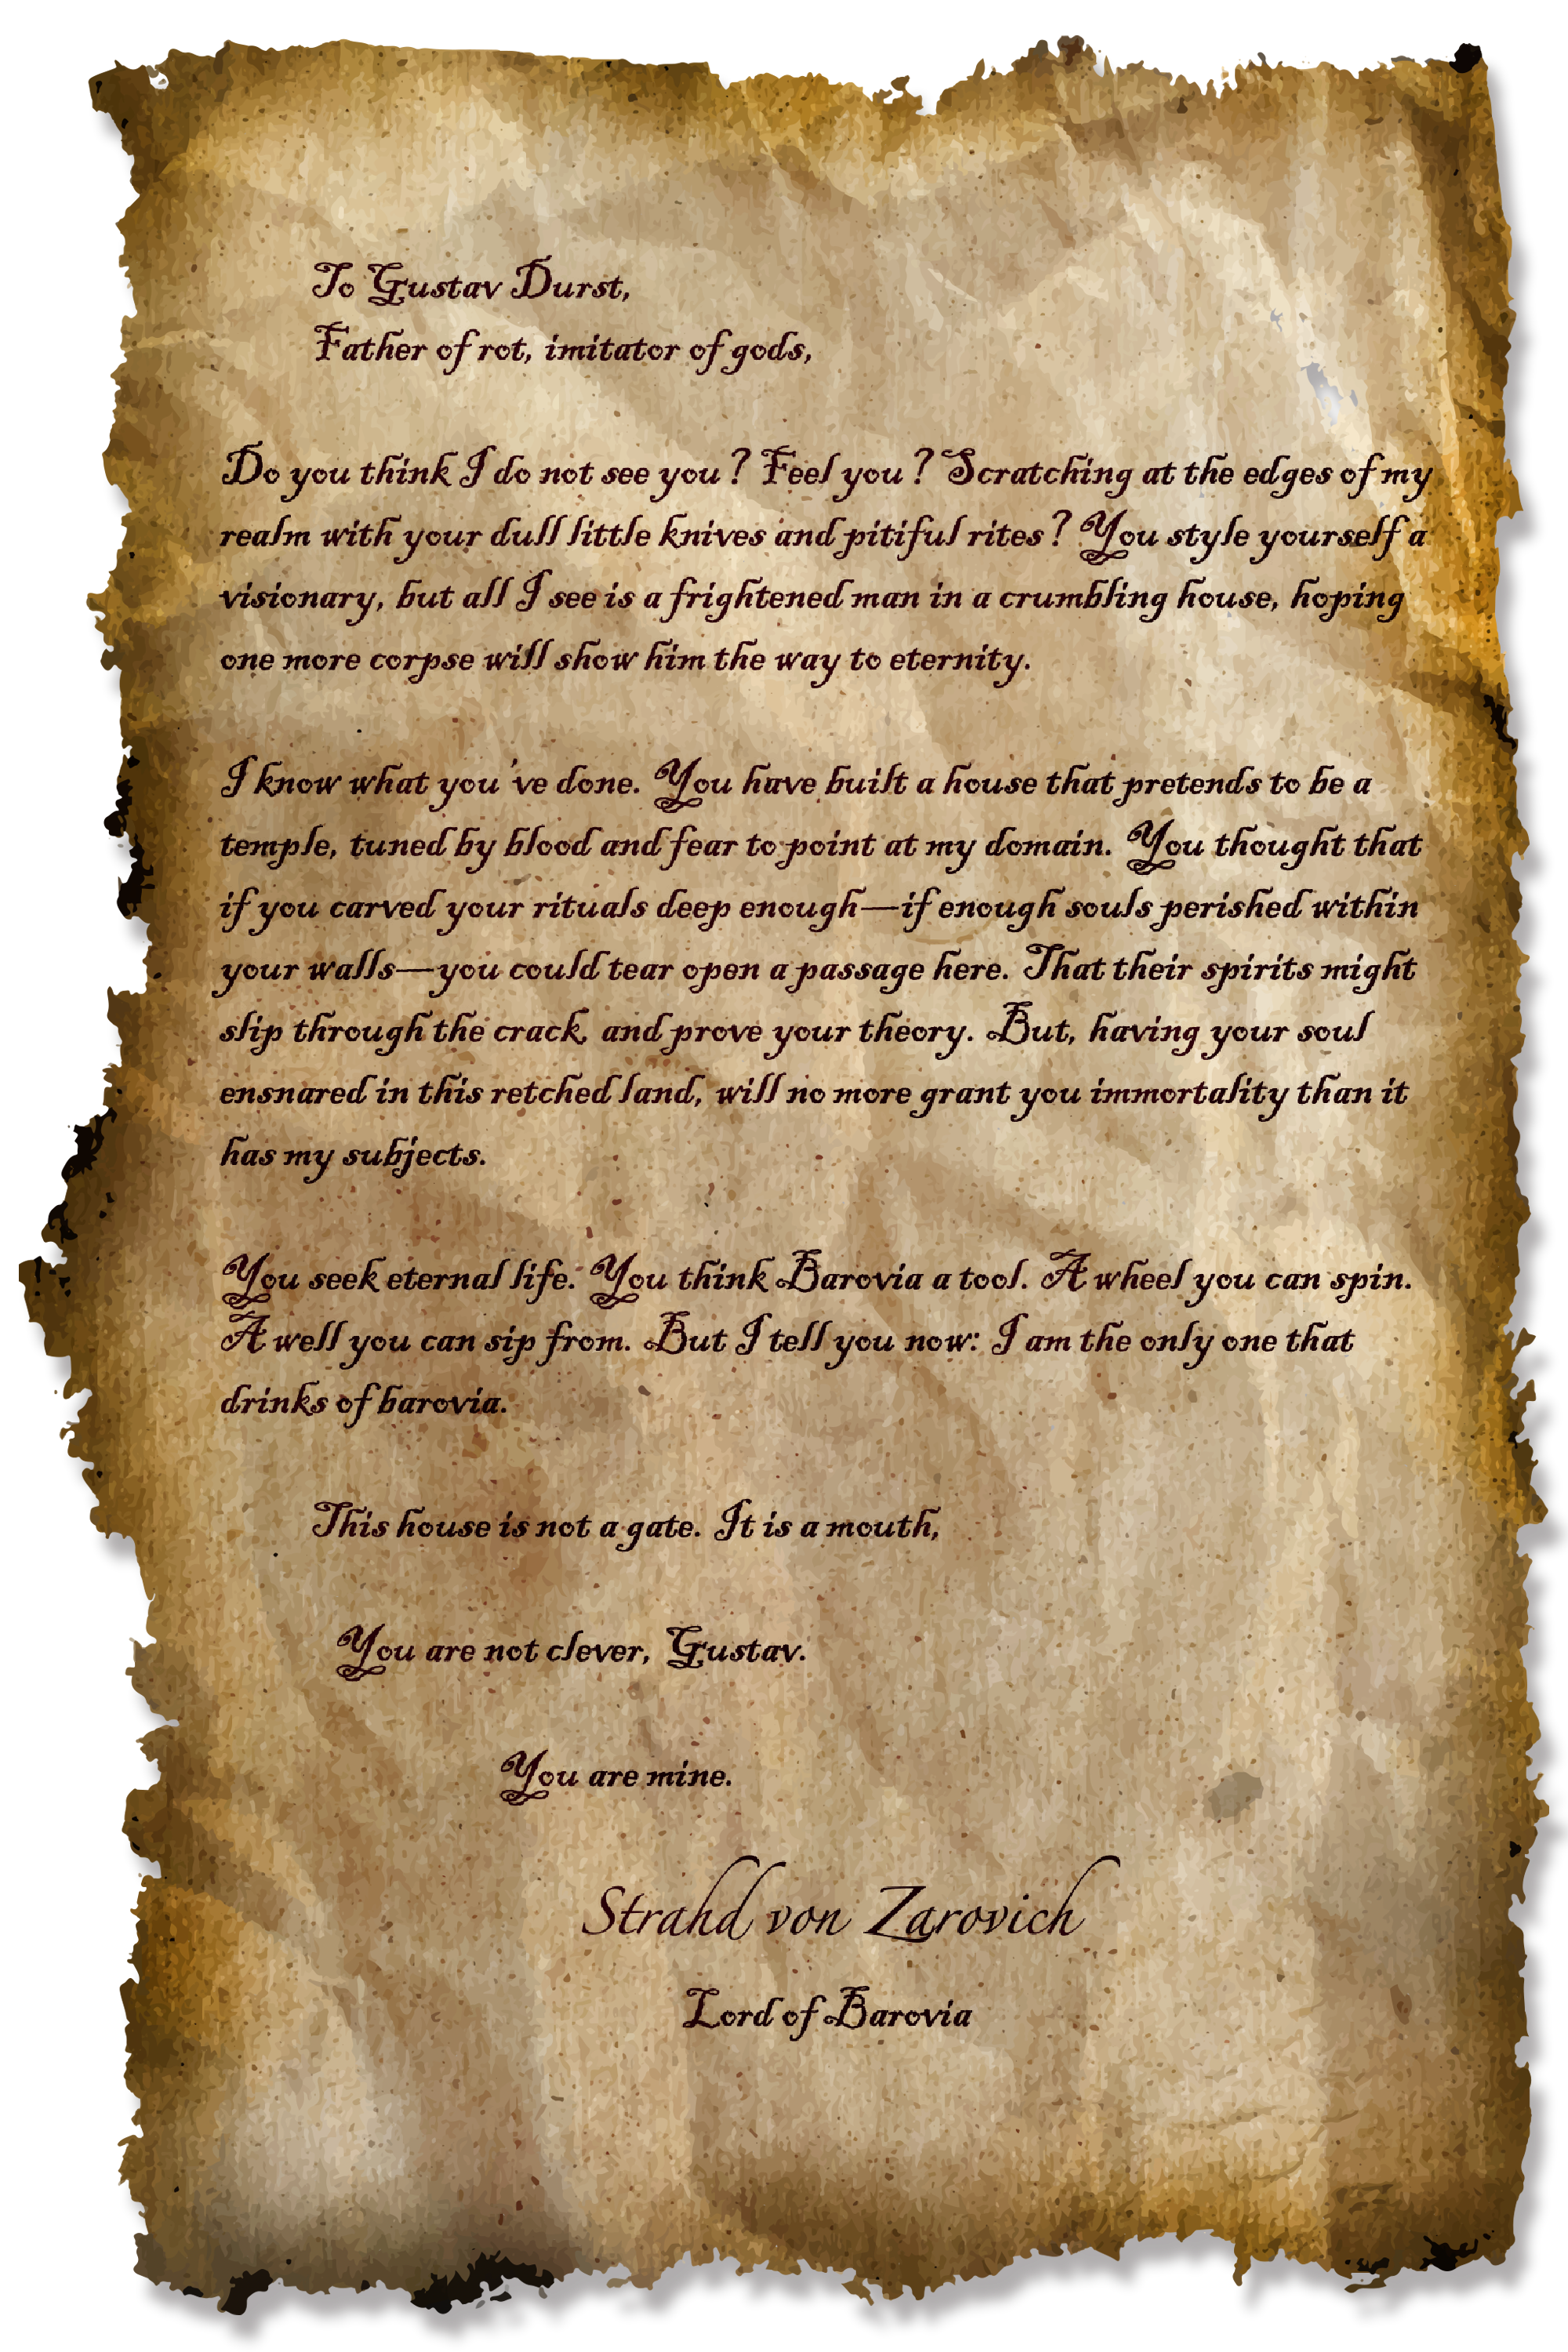 To Gustav Durst,
Father of rot, imitator of gods,
Do you think I do not see you? Feel you? Scratching at the edges of my
realm with your dull little knives and pitiful rites? You style yourself a
visionary, but all I see is a frightened man in a crumbling house, hoping
one more corpse will show him the way to eternity.
I know what you've done. You have built a house that pretends to be a
temple, tuned by blood and fear to point at my domain. You thought that
if you carved your rituals deep enough—if enough souls perished within
your walls—you could tear open a passage here. That their spirits might
slip through the crack, and prove your theory. But, having your soul
ensnared in this retched land, will no more grant you immortality than it
has my subjects.
You seek eternal life. You think Barovia a tool. A wheel you can spin.
A well you can sip from. But I tell you now: I am the only one that
drinks of barovia.
This house is not a gate. It is a mouth,
You are not clever, Gustav.
You are mine.
Strahd von Zarovich
Lord of Barovia